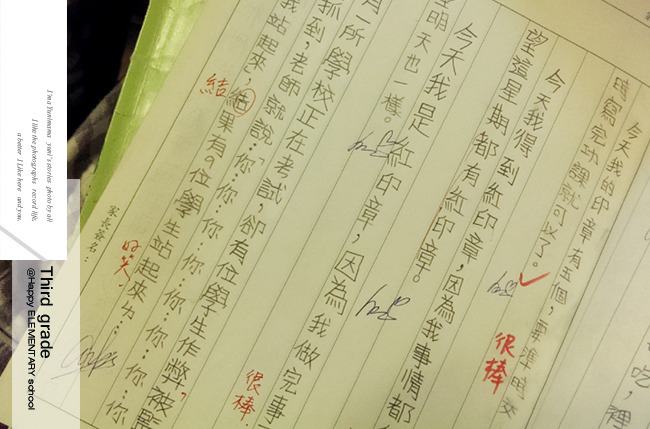 吃，裡
今天我的印章有五個，要準時交
時寫完功課就可以了。
很棒
今天我得到紅印章，因為我事情都
望這星期都有紅印章。
今天我是紅印章，因為我做完事
明天也一樣。
很棒.
有一所學校正在考試，卻有位學生作弊，被監
抓到，老師就說：「你…你…你…你…你…你
我站起來，結果有9位學生站起來ㄌ…
結
好笑.
家長簽名：
I'm a Yunimama yuni's stories photo by all
I like the photographs record life.
a better I Like here and you.
Third grade
@Happy ELEMENTARY school